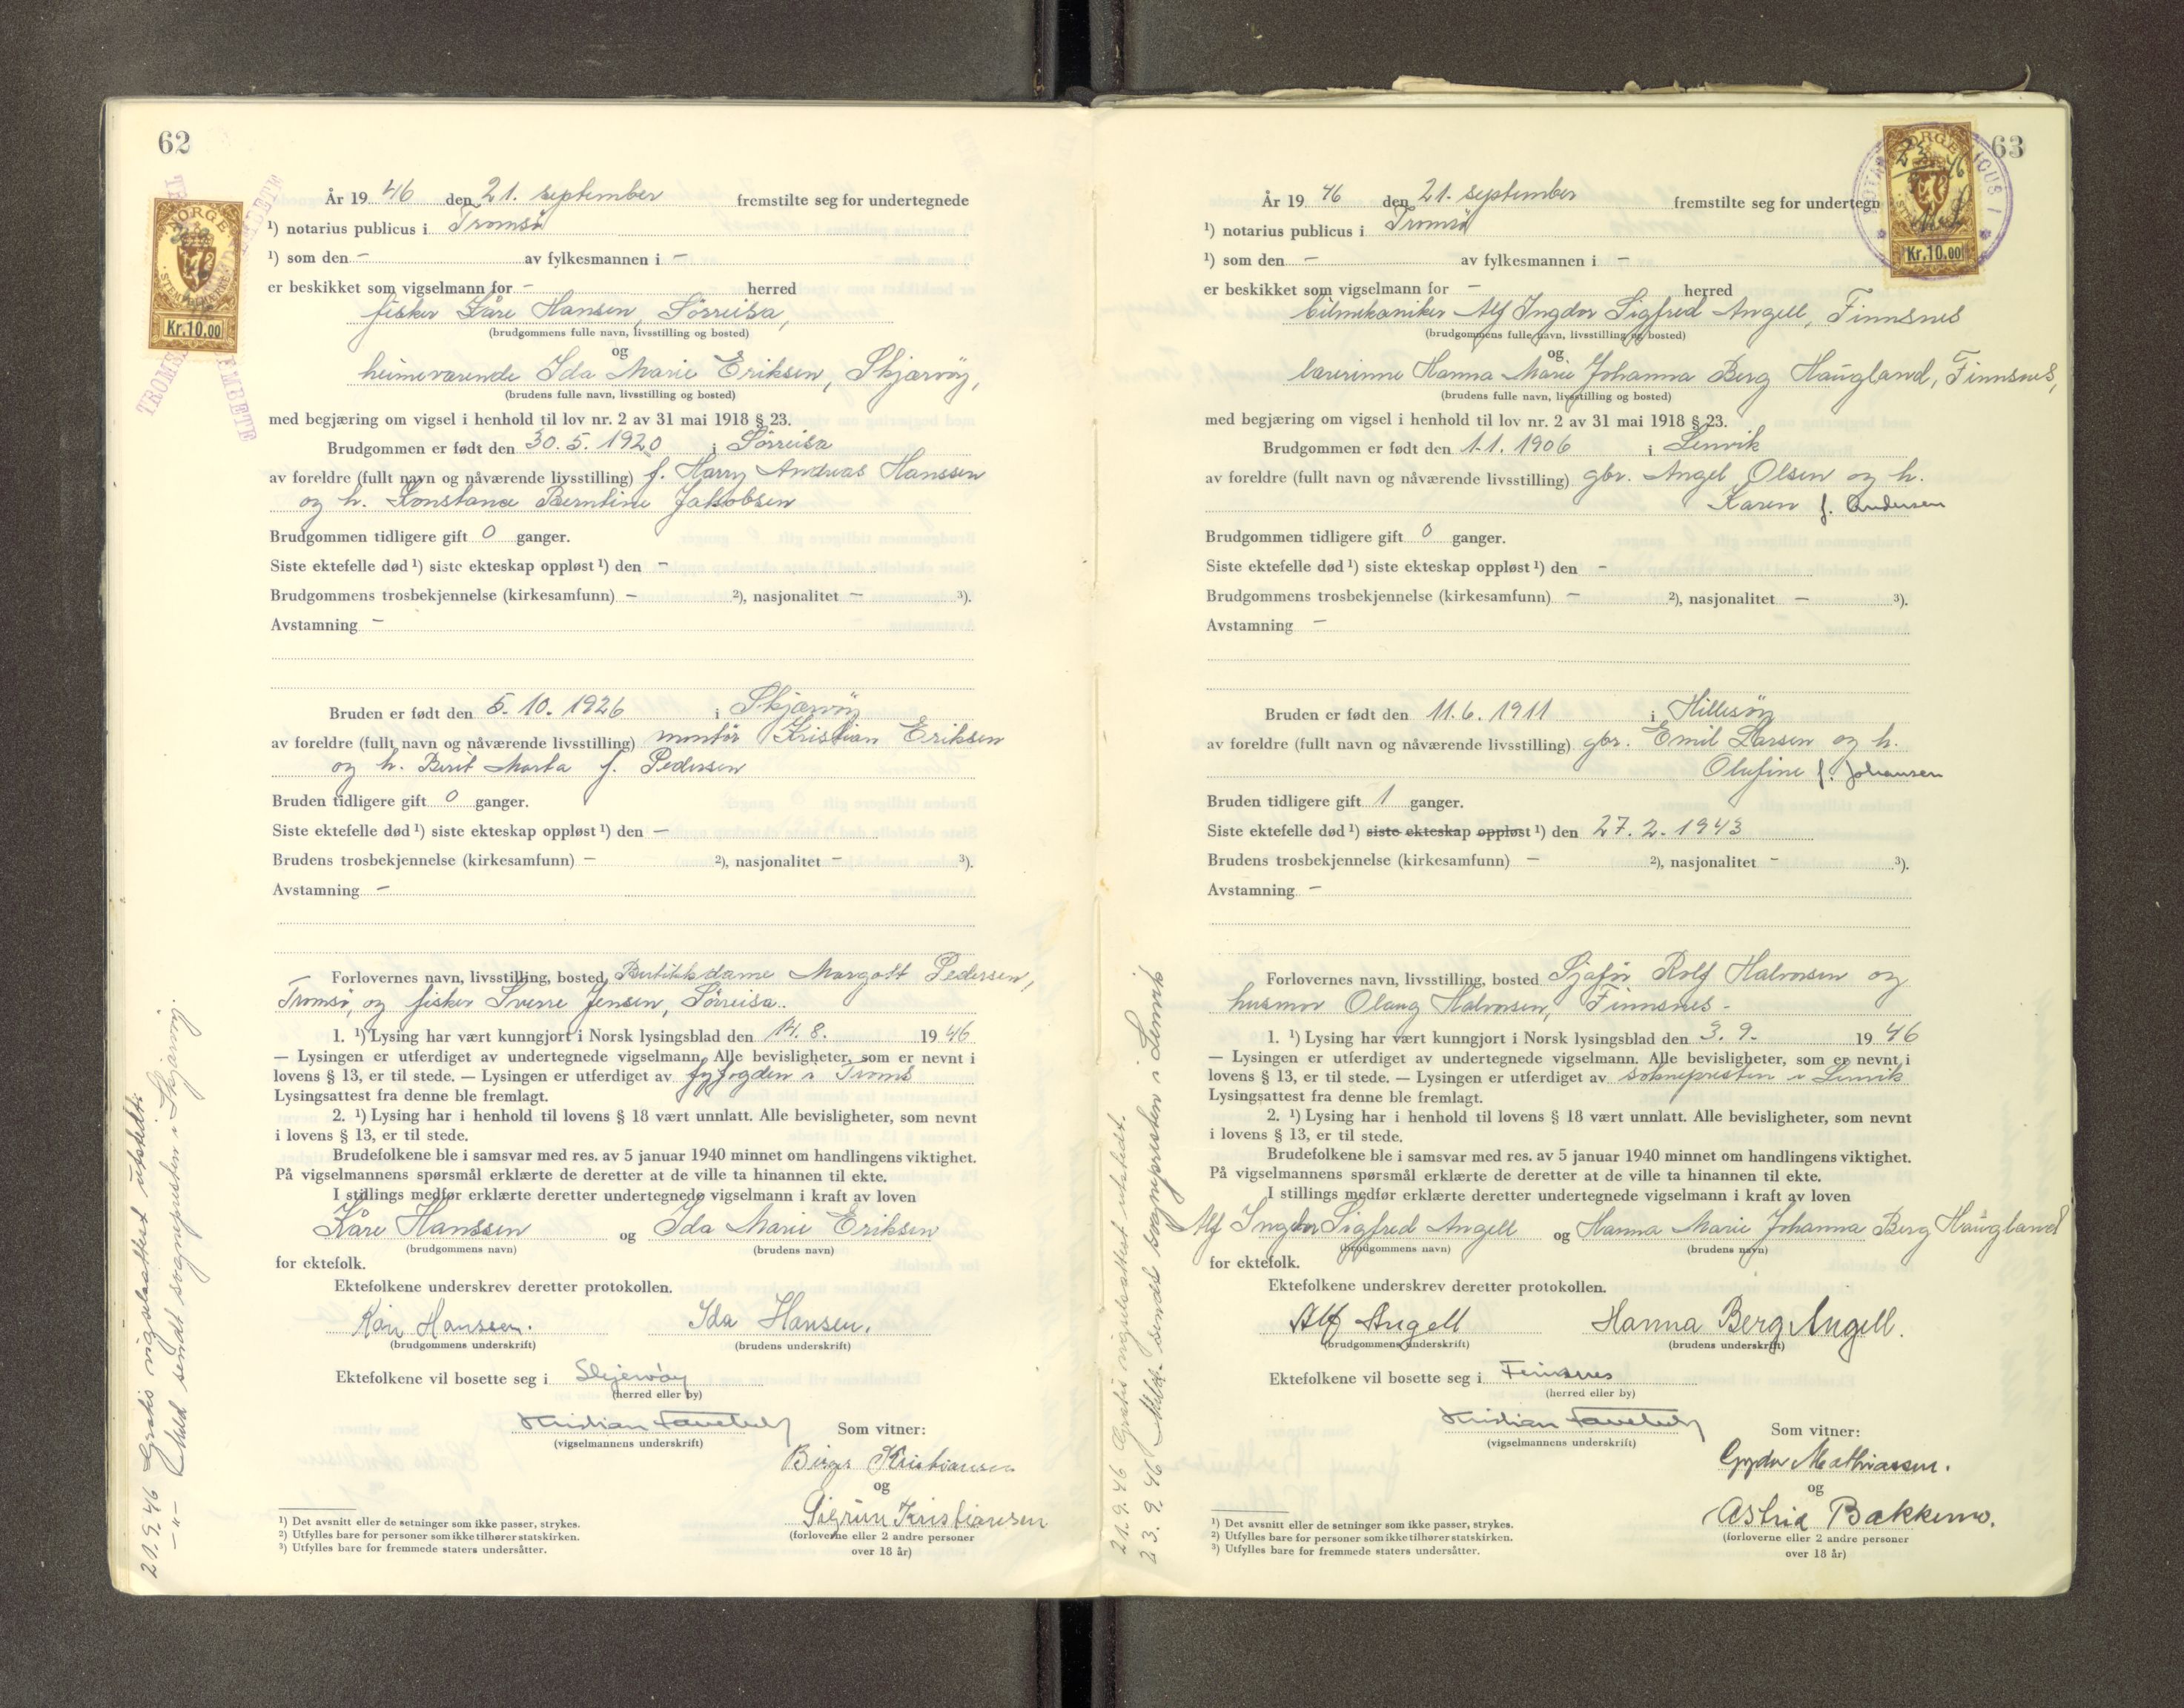 62
NORGE
Kr.10.00
År 1946 den 21. september fremstilte seg for undertegnede
¹) notarius publicus i Tromsö
¹) som den – av fylkesmannen i –
er beskikket som vigselmann for – herred
fisker Kåre Hansen, Sörreisa,
(brudgommens fulle navn, livsstilling og bosted)
og
heimeværende Ida Marie Eriksen, Skjærvöy,
(brudens fulle navn, livsstilling og bosted)
med begjæring om vigsel i henhold til lov nr. 2 av 31 mai 1918 § 23.
Brudgommen er født den 30.5.1920 i Sörreisa
av foreldre (fullt navn og nåværende livsstilling) f. Harry Andreas Hanssen
og h. Konstance Berntine Jakobsen
Brudgommen tidligere gift 0 ganger.
Siste ektefelle død ¹) siste ekteskap oppløst ¹) den –
Brudgommens trosbekjennelse (kirkesamfunn) – ²), nasjonalitet – ³).
Avstamning –
Bruden er født den 5.10.1926 i Skjærvöy
av foreldre (fullt navn og nåværende livsstilling) montör Kristian Eriksen
og h. Berit Marta f. Pedersen
Bruden tidligere gift 0 ganger.
Siste ektefelle død ¹) siste ekteskap oppløst ¹) den –
Brudens trosbekjennelse (kirkesamfunn) – ²), nasjonalitet – ³).
Avstamning –
Forlovernes navn, livsstilling, bosted Butikkdame Margott Pedersen,
Tromsö, og fisker Sverre Jensen, Sörreisa.
1. ¹) Lysing har vært kunngjort i Norsk lysingsblad den 14.8. 1946
— Lysingen er utferdiget av undertegnede vigselmann. Alle bevisligheter, som er nevnt i
lovens § 13, er til stede. — Lysingen er utferdiget av byfogden i Tromsö
Lysingsattest fra denne ble fremlagt.
2. ¹) Lysing har i henhold til lovens § 18 vært unnlatt. Alle bevisligheter, som nevnt
i lovens § 13, er til stede.
Brudefolkene ble i samsvar med res. av 5 januar 1940 minnet om handlingens viktighet.
På vigselmannens spørsmål erklærte de deretter at de ville ta hinannen til ekte.
I stillings medfør erklærte deretter undertegnede vigselmann i kraft av loven
Kåre Hanssen og Ida Marie Eriksen
(brudgommens navn) (brudens navn)
for ektefolk.
Ektefolkene underskrev deretter protokollen.
Kåre Hanssen. Ida Hansen.
(brudgommens underskrift) (brudens underskrift)
Ektefolkene vil bosette seg i Skjervöy
(herred eller by)
Kristian
(vigselmannens underskrift)
Som vitner:
Birger Kristiansen
og
Sigrun Kristiansen
(forloverne eller 2 andre personer
over 18 år)
¹) Det avsnitt eller de setninger som ikke passer, strykes.
²) Utfylles bare for personer som ikke tilhører statskirken.
³) Utfylles bare for fremmede staters undersåtter.
21.9.46 Gratis vigselsattest utstedt.
—"— Meld. sendt sognepresten i Skjærvöy.
63
NORGE
Kr.10.00
År 1946 den 21. september fremstilte seg for undertegn
¹) notarius publicus i Tromsö
¹) som den – av fylkesmannen i –
er beskikket som vigselmann for – herred
bilmekaniker Alf Ingdor Sigfred Angell, Finnsnes
(brudgommens fulle navn, livsstilling og bosted)
og
lærerinne Hanna Marie Johanna Berg Haugland, Finnsnes,
(brudens fulle navn, livsstilling og bosted)
med begjæring om vigsel i henhold til lov nr. 2 av 31 mai 1918 § 23.
Brudgommen er født den 1.1.1906 i Lenvik
av foreldre (fullt navn og nåværende livsstilling) gbr. Angel Olsen og h.
Karen f. Andersen
Brudgommen tidligere gift 0 ganger.
Siste ektefelle død ¹) siste ekteskap oppløst ¹) den –
Brudgommens trosbekjennelse (kirkesamfunn) – ²), nasjonalitet – ³).
Avstamning –
Bruden er født den 11.6.1911 i Hillesöy
av foreldre (fullt navn og nåværende livsstilling) gbr. Emil Larsen og h.
Olufine f. Johansen
Bruden tidligere gift 1 ganger.
Siste ektefelle død ¹) siste ekteskap oppløst ¹) den 27.2.1943
Brudens trosbekjennelse (kirkesamfunn) – ²), nasjonalitet – ³).
Avstamning –
Forlovernes navn, livsstilling, bosted Sjåför Rolf Halvorsen og
husmor Olaug Halvorsen, Finnsnes –
1. ¹) Lysing har vært kunngjort i Norsk lysingsblad den 3.9. 1946
— Lysingen er utferdiget av undertegnede vigselmann. Alle bevisligheter, som er nevnt i
lovens § 13, er til stede. — Lysingen er utferdiget av soknepresten i Lenvik
Lysingsattest fra denne ble fremlagt.
2. ¹) Lysing har i henhold til lovens § 18 vært unnlatt. Alle bevisligheter, som nevnt
i lovens § 13, er til stede.
Brudefolkene ble i samsvar med res. av 5 januar 1940 minnet om handlingens viktighet.
På vigselmannens spørsmål erklærte de deretter at de ville ta hinannen til ekte.
I stillings medfør erklærte deretter undertegnede vigselmann i kraft av loven
Alf Ingdor Sigfred Angell og Hanna Marie Johanna Berg Haugland
(brudgommens navn) (brudens navn)
for ektefolk.
Ektefolkene underskrev deretter protokollen.
Alf Angell Hanna Berg Angell.
(brudgommens underskrift) (brudens underskrift)
Ektefolkene vil bosette seg i Finnsnes
(herred eller by)
Kristian
(vigselmannens underskrift)
Som vitner:
Gyda Mathiassen.
og
Astrid Bakkemo.
(forloverne eller 2 andre personer
over 18 år)
¹) Det avsnitt eller de setninger som ikke passer, strykes.
²) Utfylles bare for personer som ikke tilhører statskirken.
³) Utfylles bare for fremmede staters undersåtter.
21.9.46 Gratis vigselsattest utstedt.
23.9.46 Meld. sendt sognepresten i Lenvik